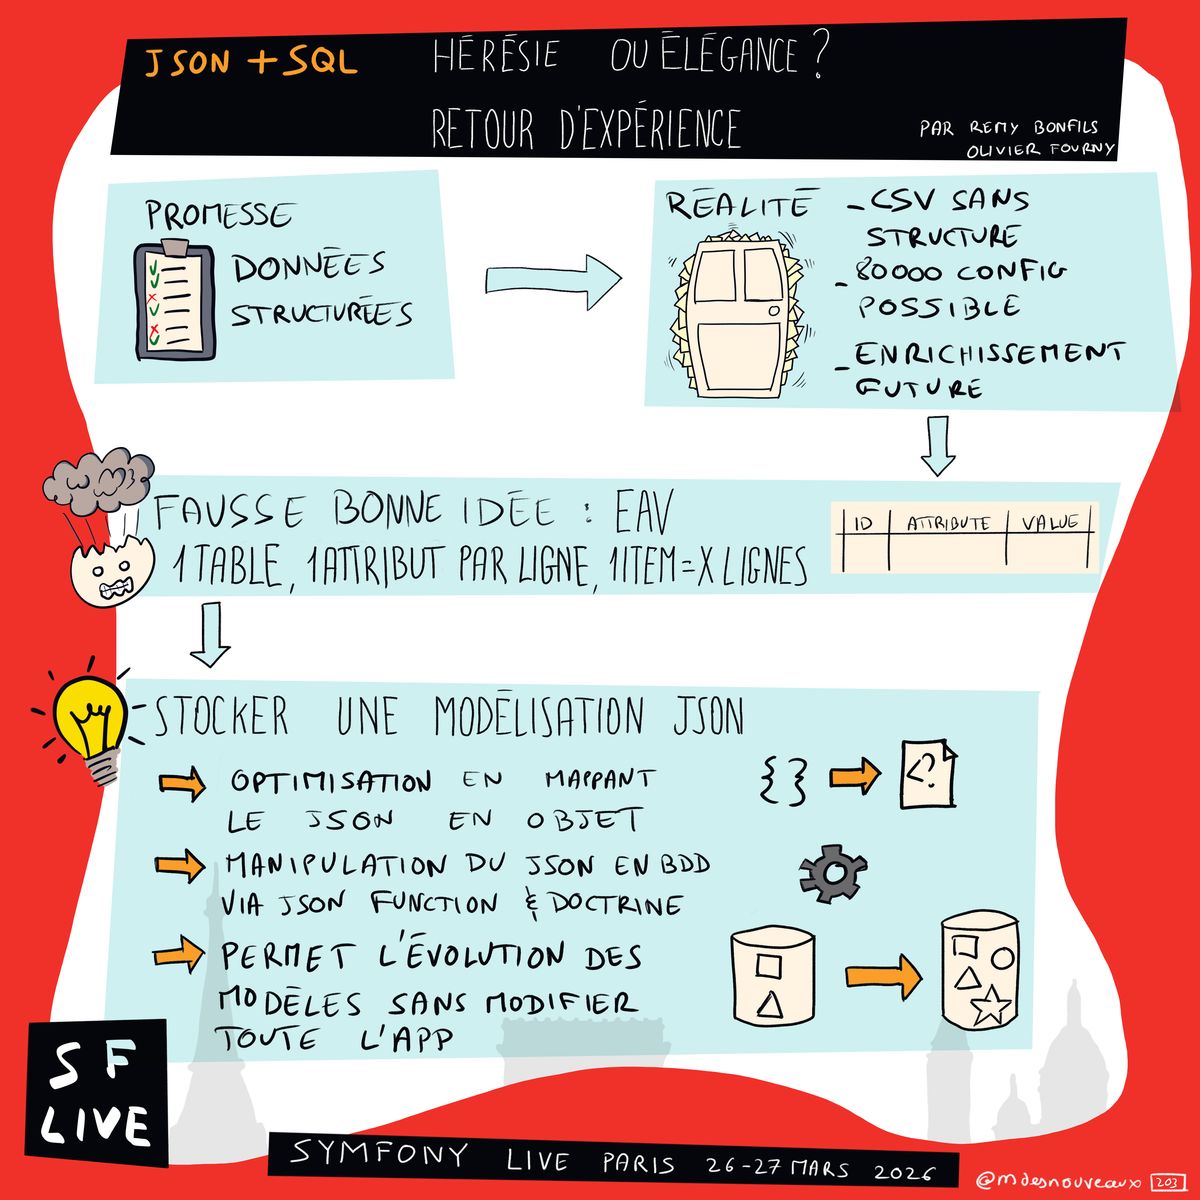 JSON + SQL HÉRÉSIE OU ÉLÉGANCE ?
RETOUR D'EXPÉRIENCE
PAR REMY BONFILS
OLIVIER FOURNY
PROMESSE
DONNÉES
STRUCTURÉES
RÉALITÉ
- CSV SANS
STRUCTURE
- 80000 CONFIG
POSSIBLE
- ENRICHISSEMENT
FUTURE
FAUSSE BONNE IDÉE : EAV
1 TABLE, 1 ATTRIBUT PAR LIGNE, 1 ITEM = X LIGNES
ID ATTRIBUTE VALUE
STOCKER UNE MODÉLISATION JSON
OPTIMISATION EN MAPPANT
LE JSON EN OBJET
{} <?
MANIPULATION DU JSON EN BDD
VIA JSON FUNCTION & DOCTRINE
PERMET L'ÉVOLUTION DES
MODÈLES SANS MODIFIER
TOUTE L'APP
SF
LIVE
SYMFONY LIVE PARIS 26-27 MARS 2026
@mdesnouveaux 203